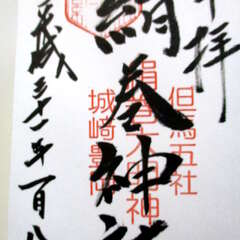 奉拝
但馬五社
絹巻大明神
城崎
絹巻神社
平成三十一年一月八